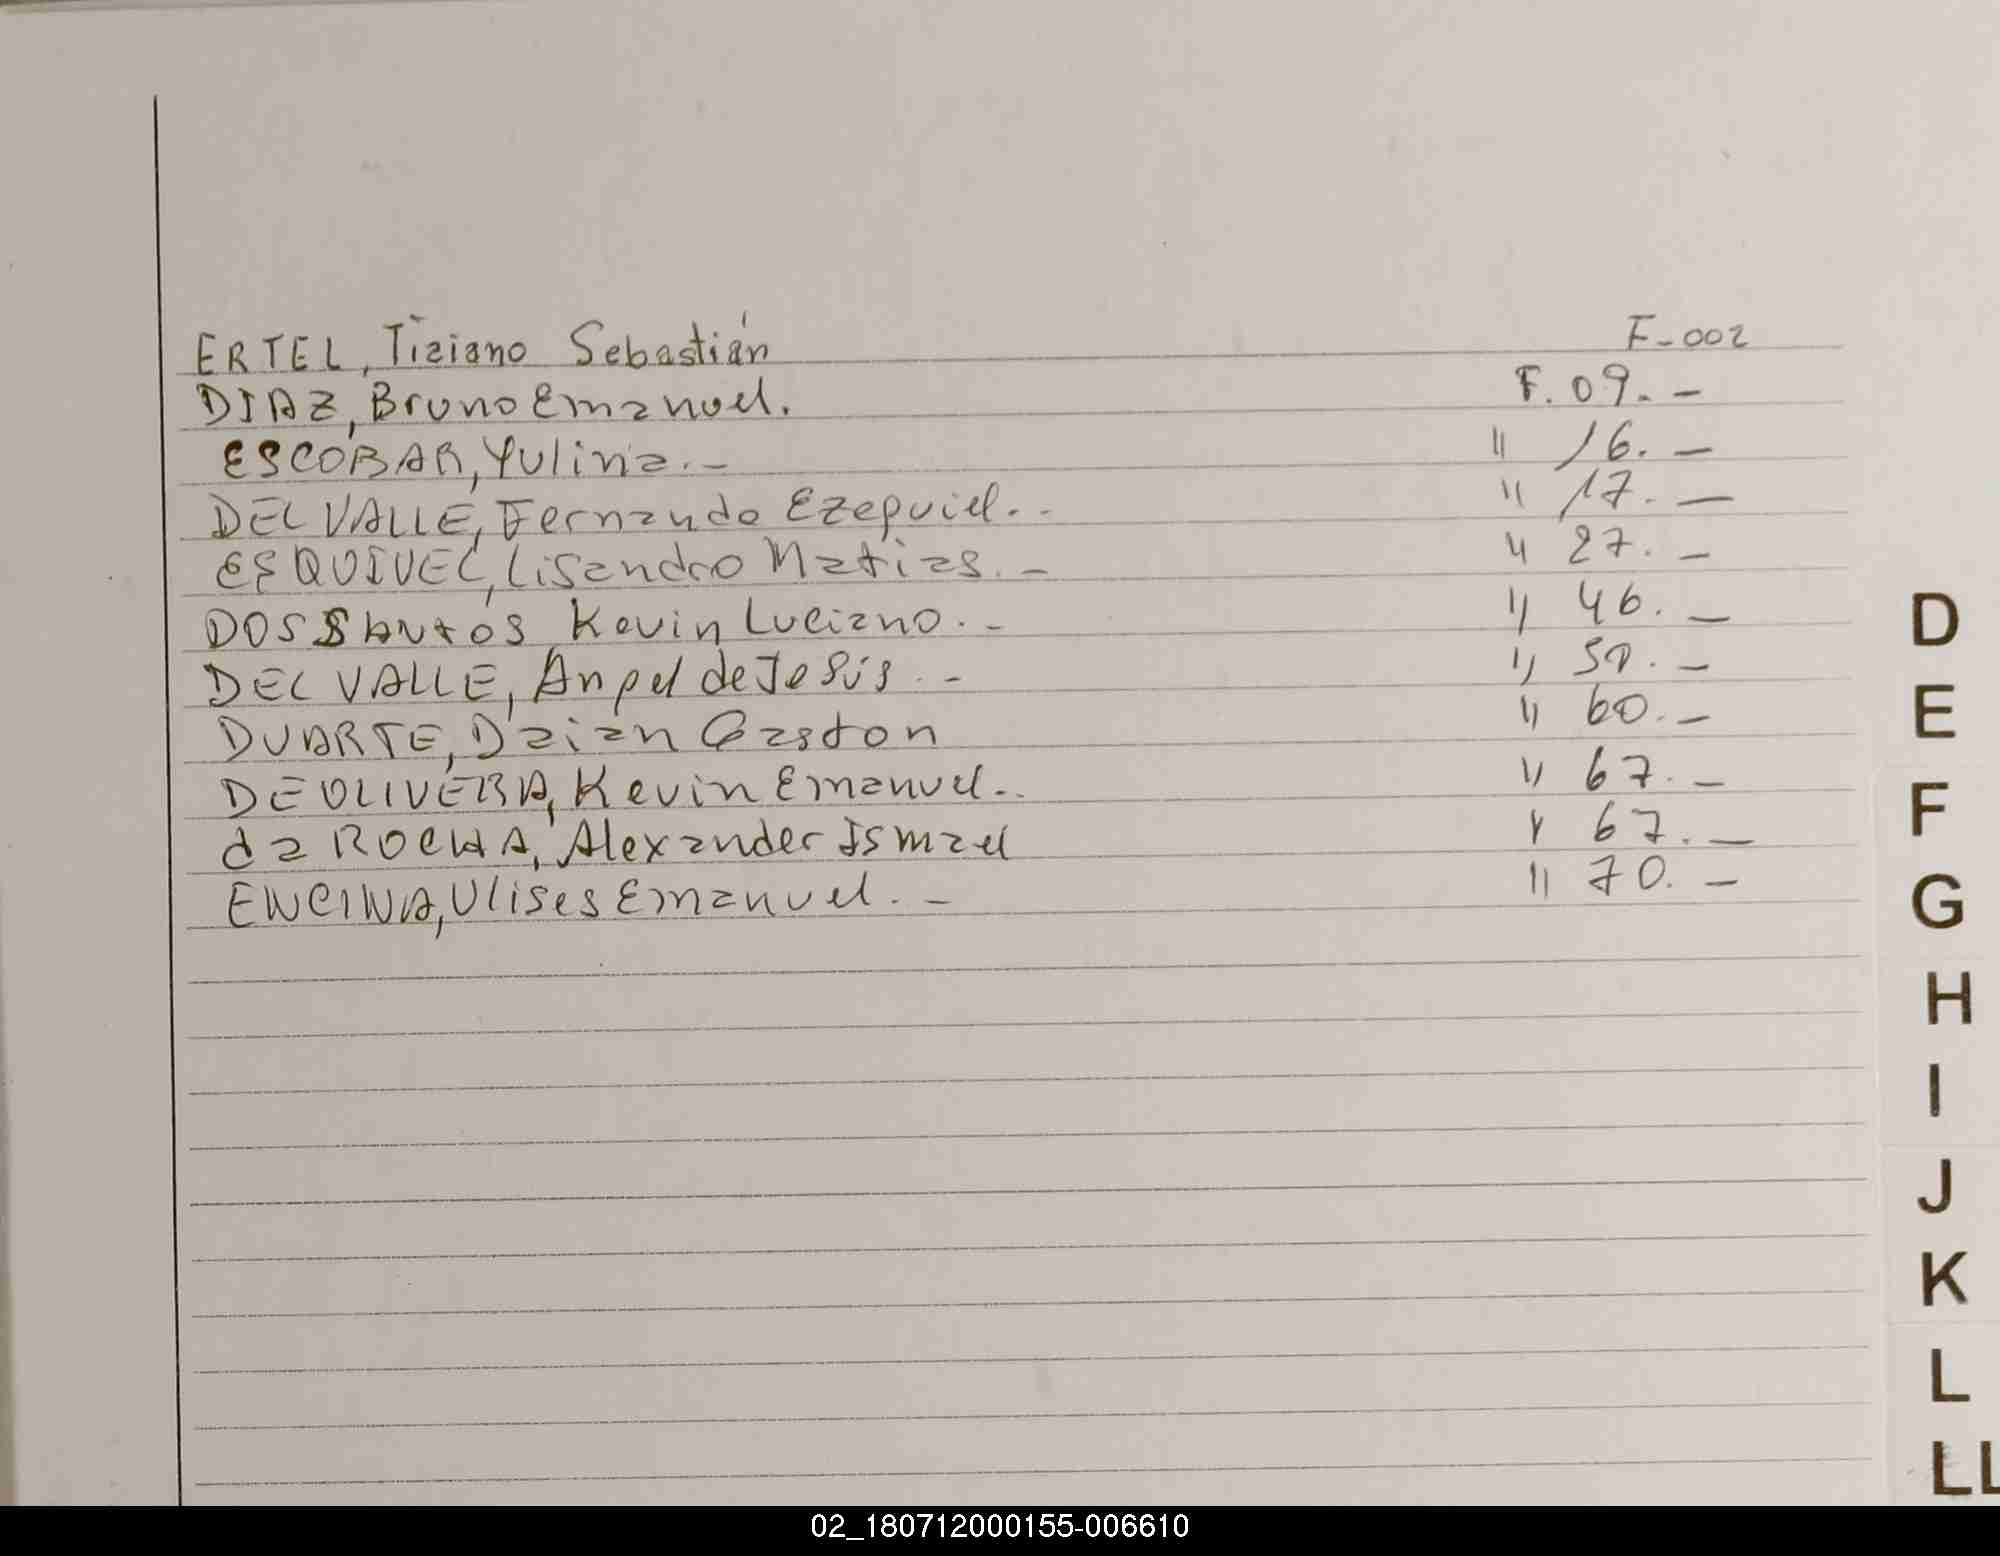 ERTEL, Tiziano Sebastián F-002
DIAZ, Bruno Emanuel. F. 09. -
ESCOBAR, Yulina. - " 16. -
DEL VALLE, Fernando Ezequiel. - " 17. -
ESQUIVEL, Lisandro Matias. - " 27. -
DOS SANTOS Kevin Luciano. - " 46. -
DEL VALLE, Angel de Jesús. - " 50. -
DUARTE, Dzian Gaston " 60. -
DE OLIVEIRA, Kevin Emanuel. - " 67. -
da ROCHA, Alexander Ismael " 67. -
ENCINA, Ulises Emanuel. - " 70. -
D
E
F
G
H
I
J
K
L
LL
02_180712000155-006610